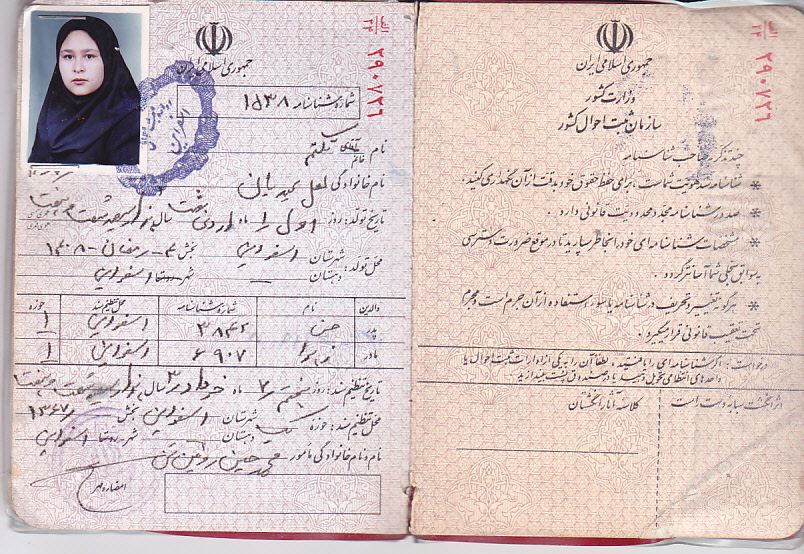 جمهوری اسلامی ایران
الف
۱۲
۲۹۰۷۲۶
شماره شناسنامه ۱۵۳۸
نام آقای خانم
نام خانوادگی لعل
تاریخ تولد: روز اول ماه سال
محل تولد: شهرستان اسفراین بخش ۴- رمضان - ۱۴۰۸
دهستان شهر اسفراین
والدین نام شماره شناسنامه محل تنظیم سند حوزه
پدر حسن ۳۸۴۲ اسفراین ۱
مادر زهرا ۶۹۰۷ اسفراین ۱
تاریخ تنظیم سند: روز هشتم ۸ ماه خرداد ۳ سال
۱۳۶۷
محل تنظیم سند: حوزه یک شهرستان اسفراین بخش
دهستان شهر اسفراین
نام و نام خانوادگی مأمور محمد حسین
امضاء و مهر
جمهوری اسلامی ایران
الف
۱۲
۲۹۰۷۲۶
وزارت کشور
سازمان ثبت احوال کشور
چند تذکر به صاحب شناسنامه
* شناسنامه سند هویت شماست، برای حفظ حقوق خود بدقت از آن نگهداری کنید.
* صدور شناسنامه مجدد محدودیت قانونی دارد.
* مشخصات شناسنامه ای خود را بخاطر بسپارید تا در موقع ضرورت دسترسی
به سوابق سجلی شما آسانتر گردد.
* هرگونه تغییر و تحریف در شناسنامه یا سوء استفاده از آن جرم است و مجرم
تحت تعقیب قانونی قرار میگیرد.
درخواست: اگر شناسنامه ای را یافتید، لطفا آن را به یکی از ادارات ثبت احوال یا
واحدهای انتظامی تحویل دهید یا در صندوق پست بیندازید.
اثر انگشت سبابه دست راست
کلاسه آثار انگشتان